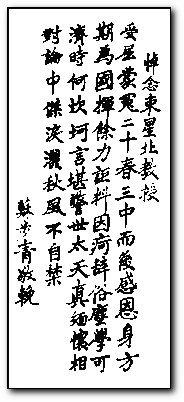 悼念束星北教授
受屈蒙冤二十春三中而後感恩身方
期為國揮餘力詎料因疴辭俗塵學可
濟時何坎坷言堪警世太天真緬懷相
對論中傑淚灑秋風不自禁
蘇步青敬輓